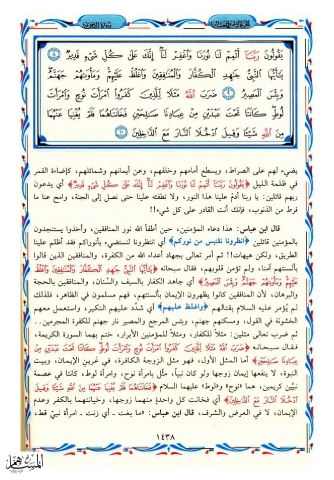 يَقُولُونَ رَبَّنَا أَتْمِمْ لَنَا نُورَنَا وَاغْفِرْ لَنَا إِنَّكَ عَلَىٰ كُلِّ شَيْءٍ قَدِيرٌ ٨
يَا أَيُّهَا النَّبِيُّ جَاهِدِ الْكُفَّارَ وَالْمُنَافِقِينَ وَاغْلُظْ عَلَيْهِمْ وَمَأْوَاهُمْ جَهَنَّمُ
وَبِئْسَ الْمَصِيرُ ٩ ضَرَبَ اللَّهُ مَثَلًا لِلَّذِينَ كَفَرُوا امْرَأَتَ نُوحٍ وَامْرَأَتَ
لُوطٍ كَانَتَا تَحْتَ عَبْدَيْنِ مِنْ عِبَادِنَا صَالِحَيْنِ فَخَانَتَاهُمَا فَلَمْ يُغْنِيَا عَنْهُمَا
مِنَ اللَّهِ شَيْئًا وَقِيلَ ادْخُلَا النَّارَ مَعَ الدَّاخِلِينَ ١٠
يضيء لهم على الصراط، ويسطع أمامهم وخلفهم، وعن أيمانهم وشمائلهم، كإضاءة القمر
في ظلمة الليل ﴿يَقُولُونَ رَبَّنَا أَتْمِمْ لَنَا نُورَنَا وَاغْفِرْ لَنَا إِنَّكَ عَلَىٰ كُلِّ شَيْءٍ قَدِيرٌ﴾ أي يدعون
ربهم قائلين: يا ربنا أدمْ علينا هذا النور، ولا تطفئه علينا حتى نصل إلى الجنة، وامح عنا ما
فرط من الذنوب، فإنك أنت القادر على كل شيء!!
قال ابن عباس: هذا دعاء المؤمنين، حين أطفأ الله نور المنافقين، وأخذوا يستنجدون
بالمؤمنين قائلين ﴿انظرونا نقتبس من نوركم﴾ أي انظرونا لنستضيء بأنواركم فقد أظلم علينا
الطريق، ولكن هيهات!! ثم أمر تعالى بجهاد أعداء الله من الكفرة، والمنافقين الذين قالوا
بألسنتهم آمنا، ولم تؤمن قلوبهم، فقال سبحانه ﴿يَا أَيُّهَا النَّبِيُّ جَاهِدِ الْكُفَّارَ وَالْمُنَافِقِينَ وَاغْلُظْ
عَلَيْهِمْ وَمَأْوَاهُمْ جَهَنَّمُ وَبِئْسَ الْمَصِيرُ﴾ أي جاهد الكفار بالسيف والسنان، والمنافقين بالحجة
والبرهان، لأن المنافقين كانوا يظهرون الإيمان بألسنتهم، فهم مسلمون في الظاهر، فلذلك
لم يُؤمر عليه السلام بقتالهم ﴿واغلظ عليهم﴾ أي شدِّد عليهم النكير، واستعمل معهم
الخشونة في القول، ومسكنهم جهنم، وبئس المرجع والمصير نار جهنم للكفرة المجرمين..
ثم ضرب تعالى مثلين: مثلاً للكفار، ومثلاً للمؤمنين الأبرار، ختم بهما السورة الكريمة،
فقال سبحانه ﴿ضَرَبَ اللَّهُ مَثَلًا لِلَّذِينَ كَفَرُوا امْرَأَتَ نُوحٍ وَامْرَأَتَ لُوطٍ كَانَتَا تَحْتَ عَبْدَيْنِ مِنْ
عِبَادِنَا صَالِحَيْنِ﴾ أما المثل الأول، فهو مثل الزوجة الكافرة، في عرين الإيمان، وبيت
النبوة، لا ينفعها إيمان زوجها ولو كان نبياً، مثّل بامرأة نوح، وامرأة لوط، كانتا في عصمة
نبيّين كريمين، هما «نوح» و«لوط» عليهما السلام ﴿فَخَانَتَاهُمَا فَلَمْ يُغْنِيَا عَنْهُمَا مِنَ اللَّهِ شَيْئًا وَقِيلَ
ادْخُلَا النَّارَ مَعَ الدَّاخِلِينَ﴾ أي فخانت كل واحدة منهما زوجها، وخيانتهما بالكفر وعدم
الإيمان، لا في العرض والشرف، قال ابن عباس: «ما بغت ـ أي زنت ـ امرأة نبيّ قط،
١٤٣٨